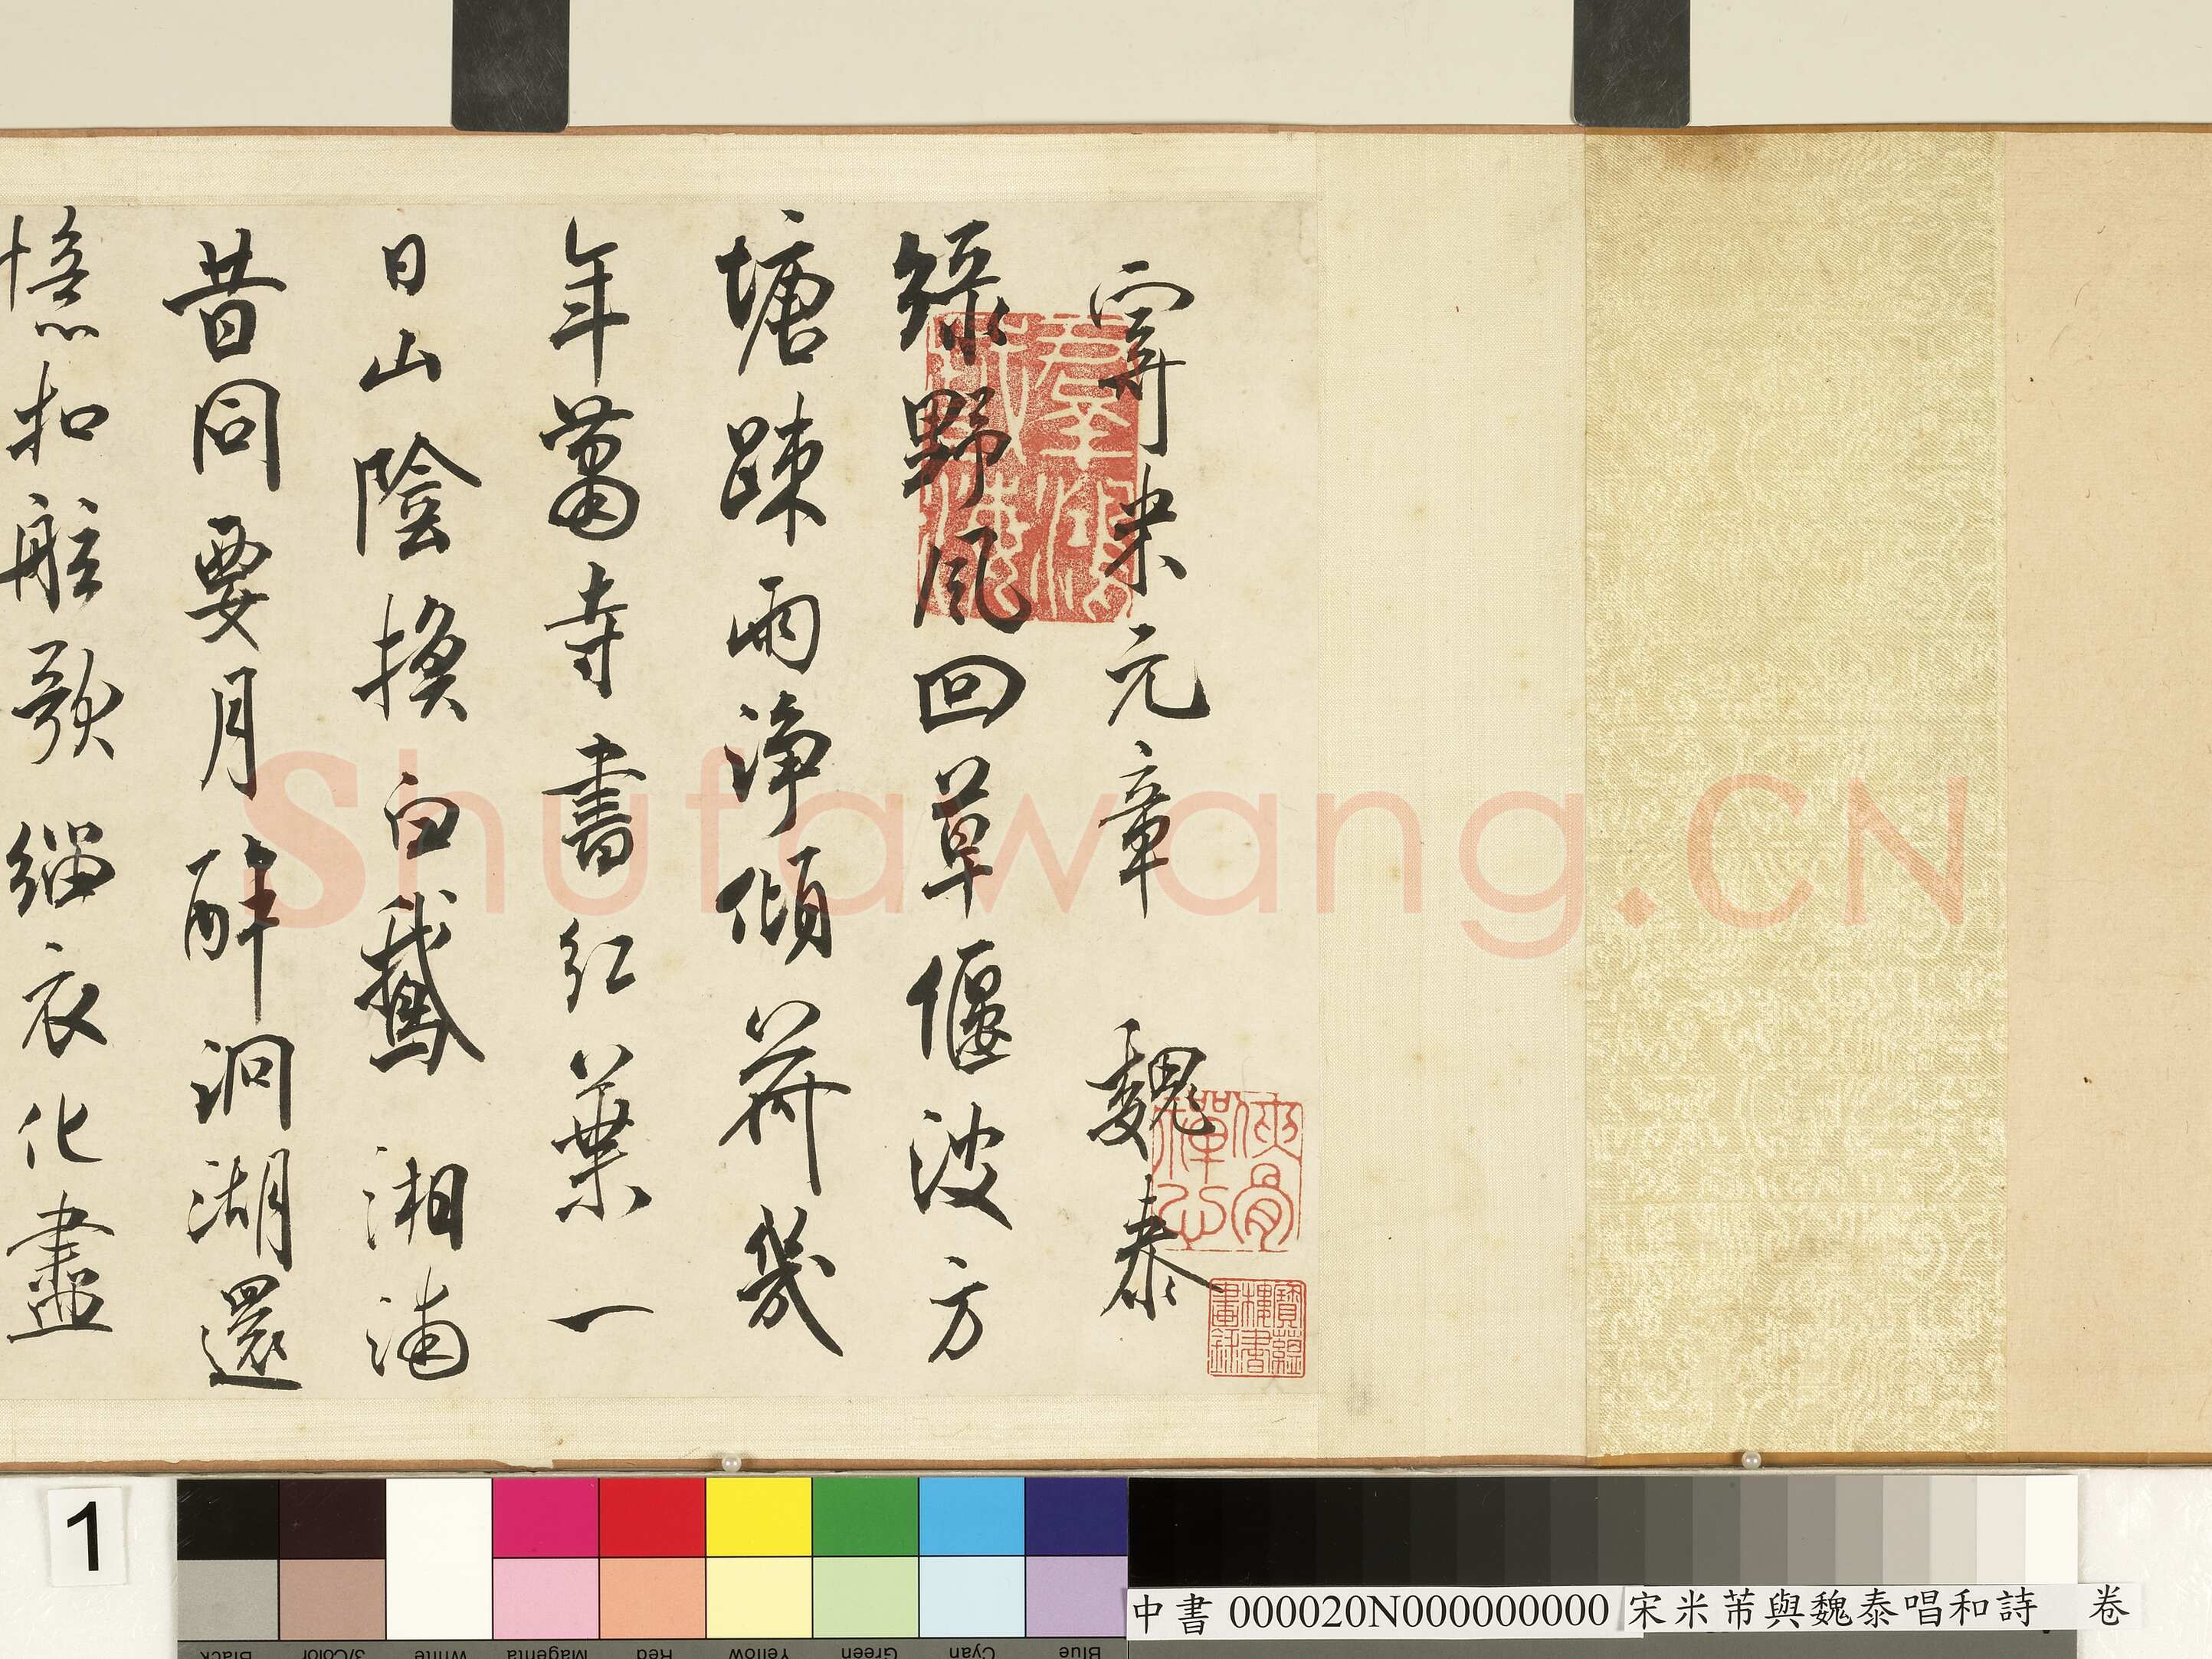 寄米元章　魏泰
綠野風回草偃波方
塘疎雨淨傾荷幾
年蕭寺書紅葉一
日山陰換白鵝湘浦
昔同要月醉洞湖還
憶扣舷歌緇衣化盡
群玉
俠骨禪心
寶蘊樓書畫錄
Shufawang.CN
1
中書 000020N000000000 宋米芾與魏泰唱和詩 卷
Black
3/Color
White
Magenta
Red
Yellow
Green
Cyan
Blue